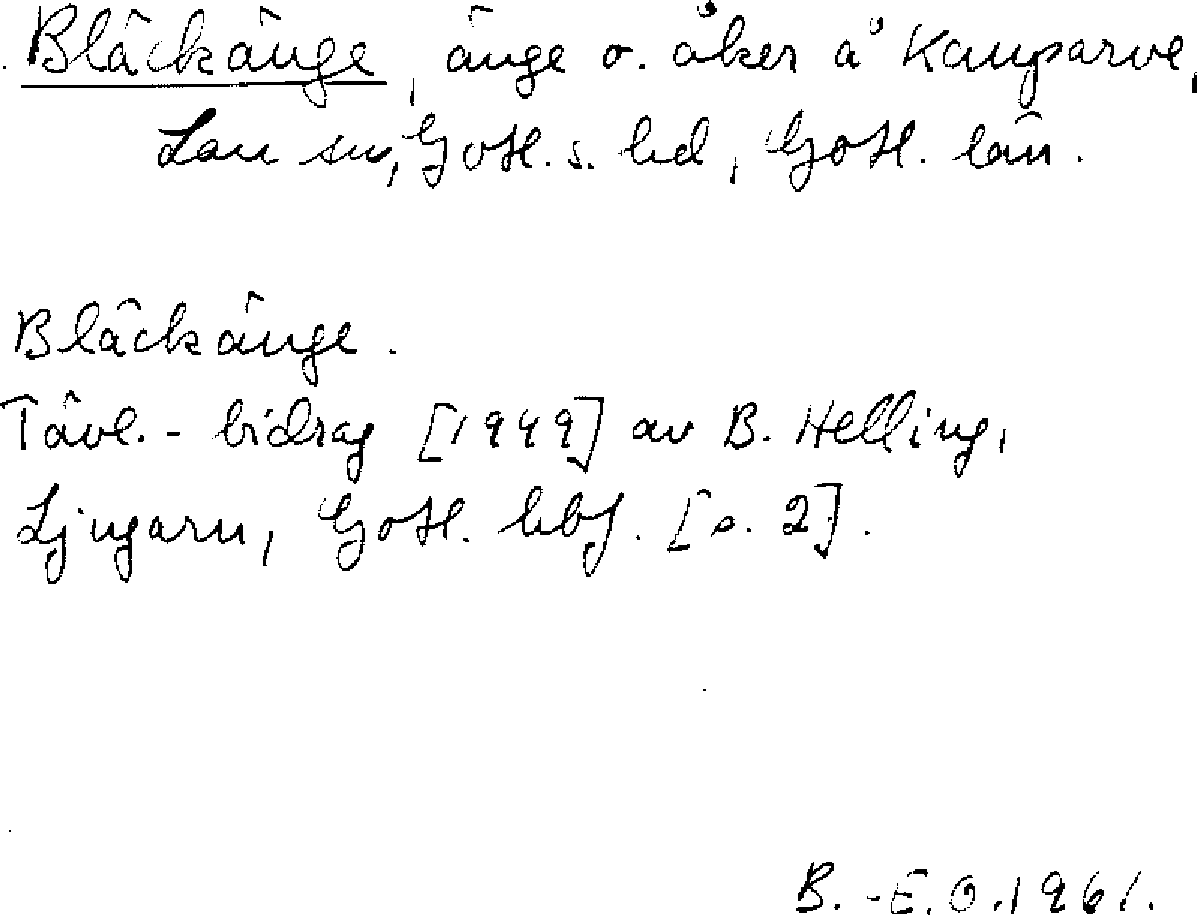 Bläckänge, änge o. åker å Kauparve,
Lau sn, Gotl. s. hd, Gotl. län.
Bläckänge.
Tävl. - bidrag [1949] av B. Helling,
Ljugarn, Gotl. hbf. [s. 2].
B. -E. O. 1961.